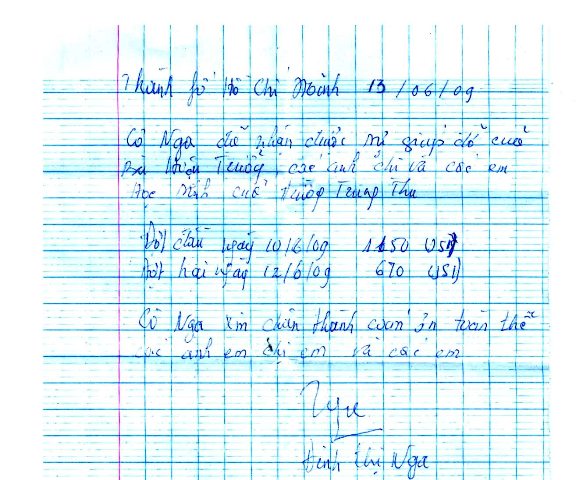 Thành fố Hồ Chí Minh 13/06/09
Cô Nga đã nhận được sự giúp đỡ của
Bà Tnưởng, các anh chị và các em
học sinh của trường Trưng Thu
Đợt đầu ngày 10/6/09 1150 USD
Đợt hai ngày 12/6/09 670 USD
Cô Nga xin chân thành cám ơn toàn thể
các anh em chị em và các em
Đinh thị Nga